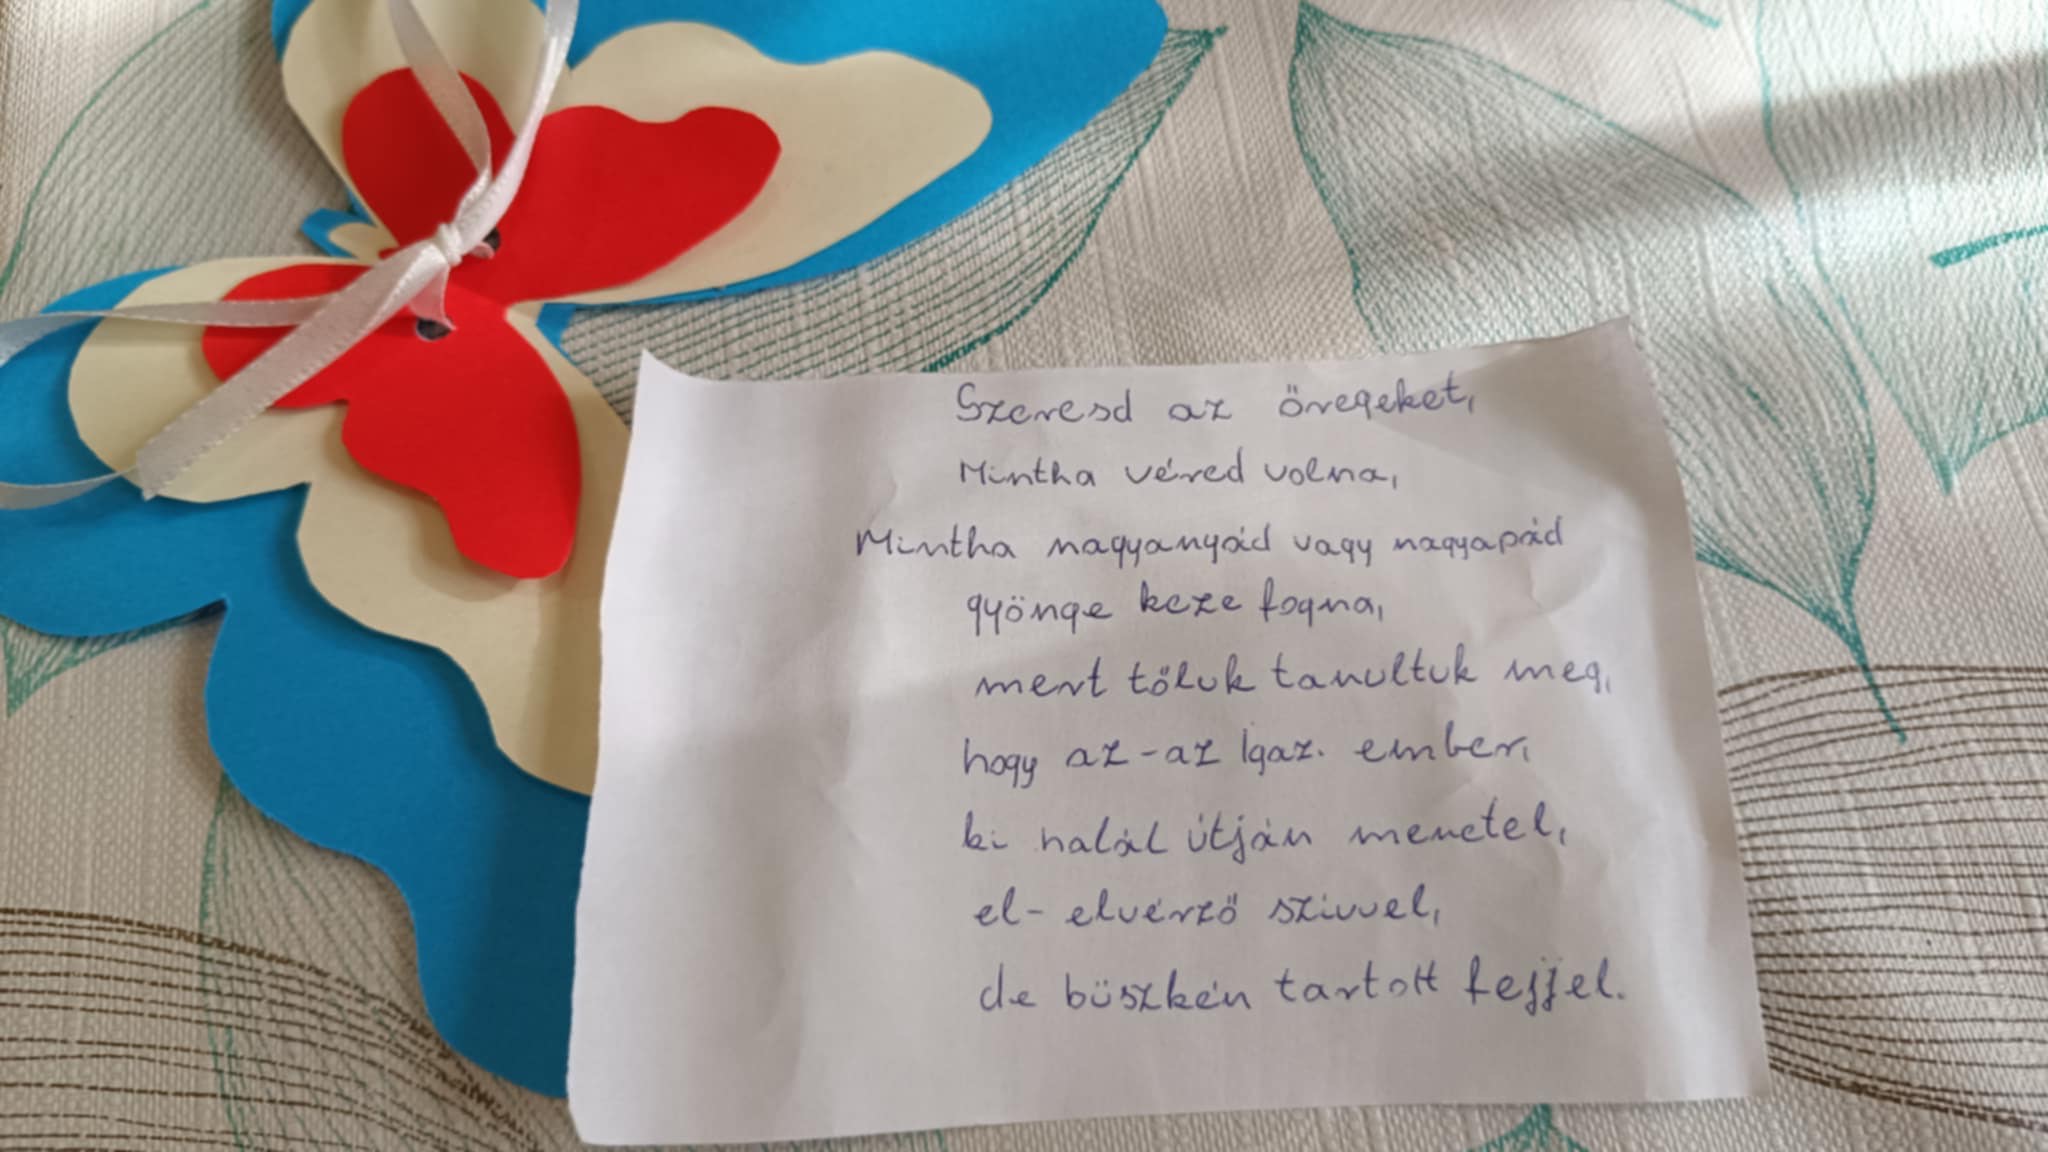 Szeresd az öregeket,
Mintha véred volna,
Mintha nagyanyád vagy nagyapád
gyönge keze fogna,
mert tőluk tanultuk meg,
hogy az-az Igaz. ember,
ki halál útján menetel,
el- elvérző szivvel,
de büszkén tartott fejjel.